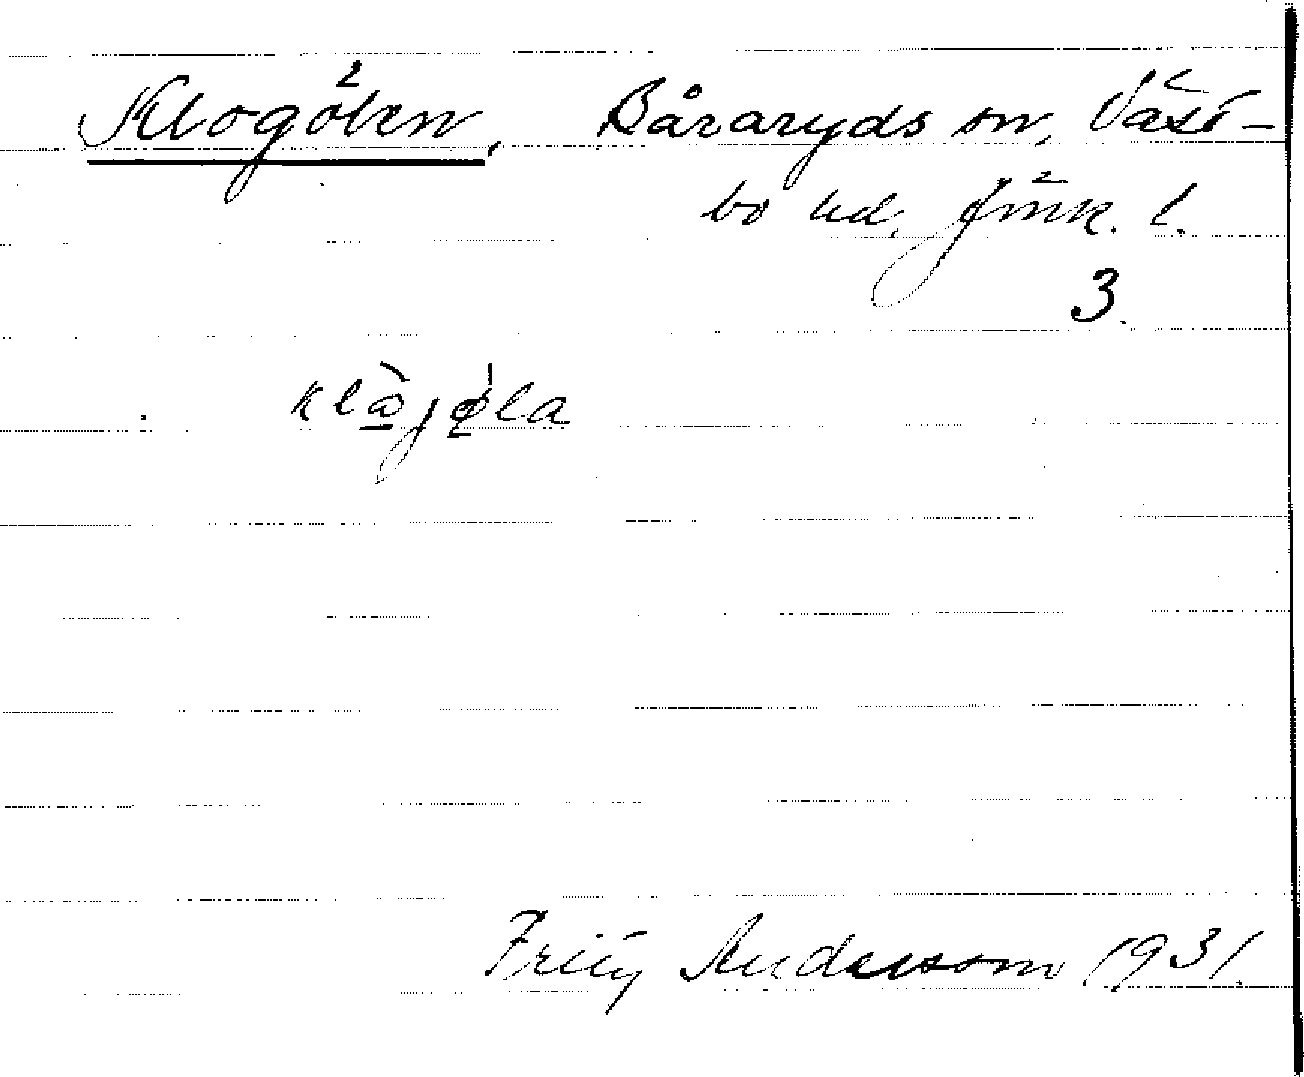 Klogölen, Båraryds sn, Väst-
bo hd, Jönk. l.
3.
klὼ̲jǿ̲la
Fritz Andersson 1931.